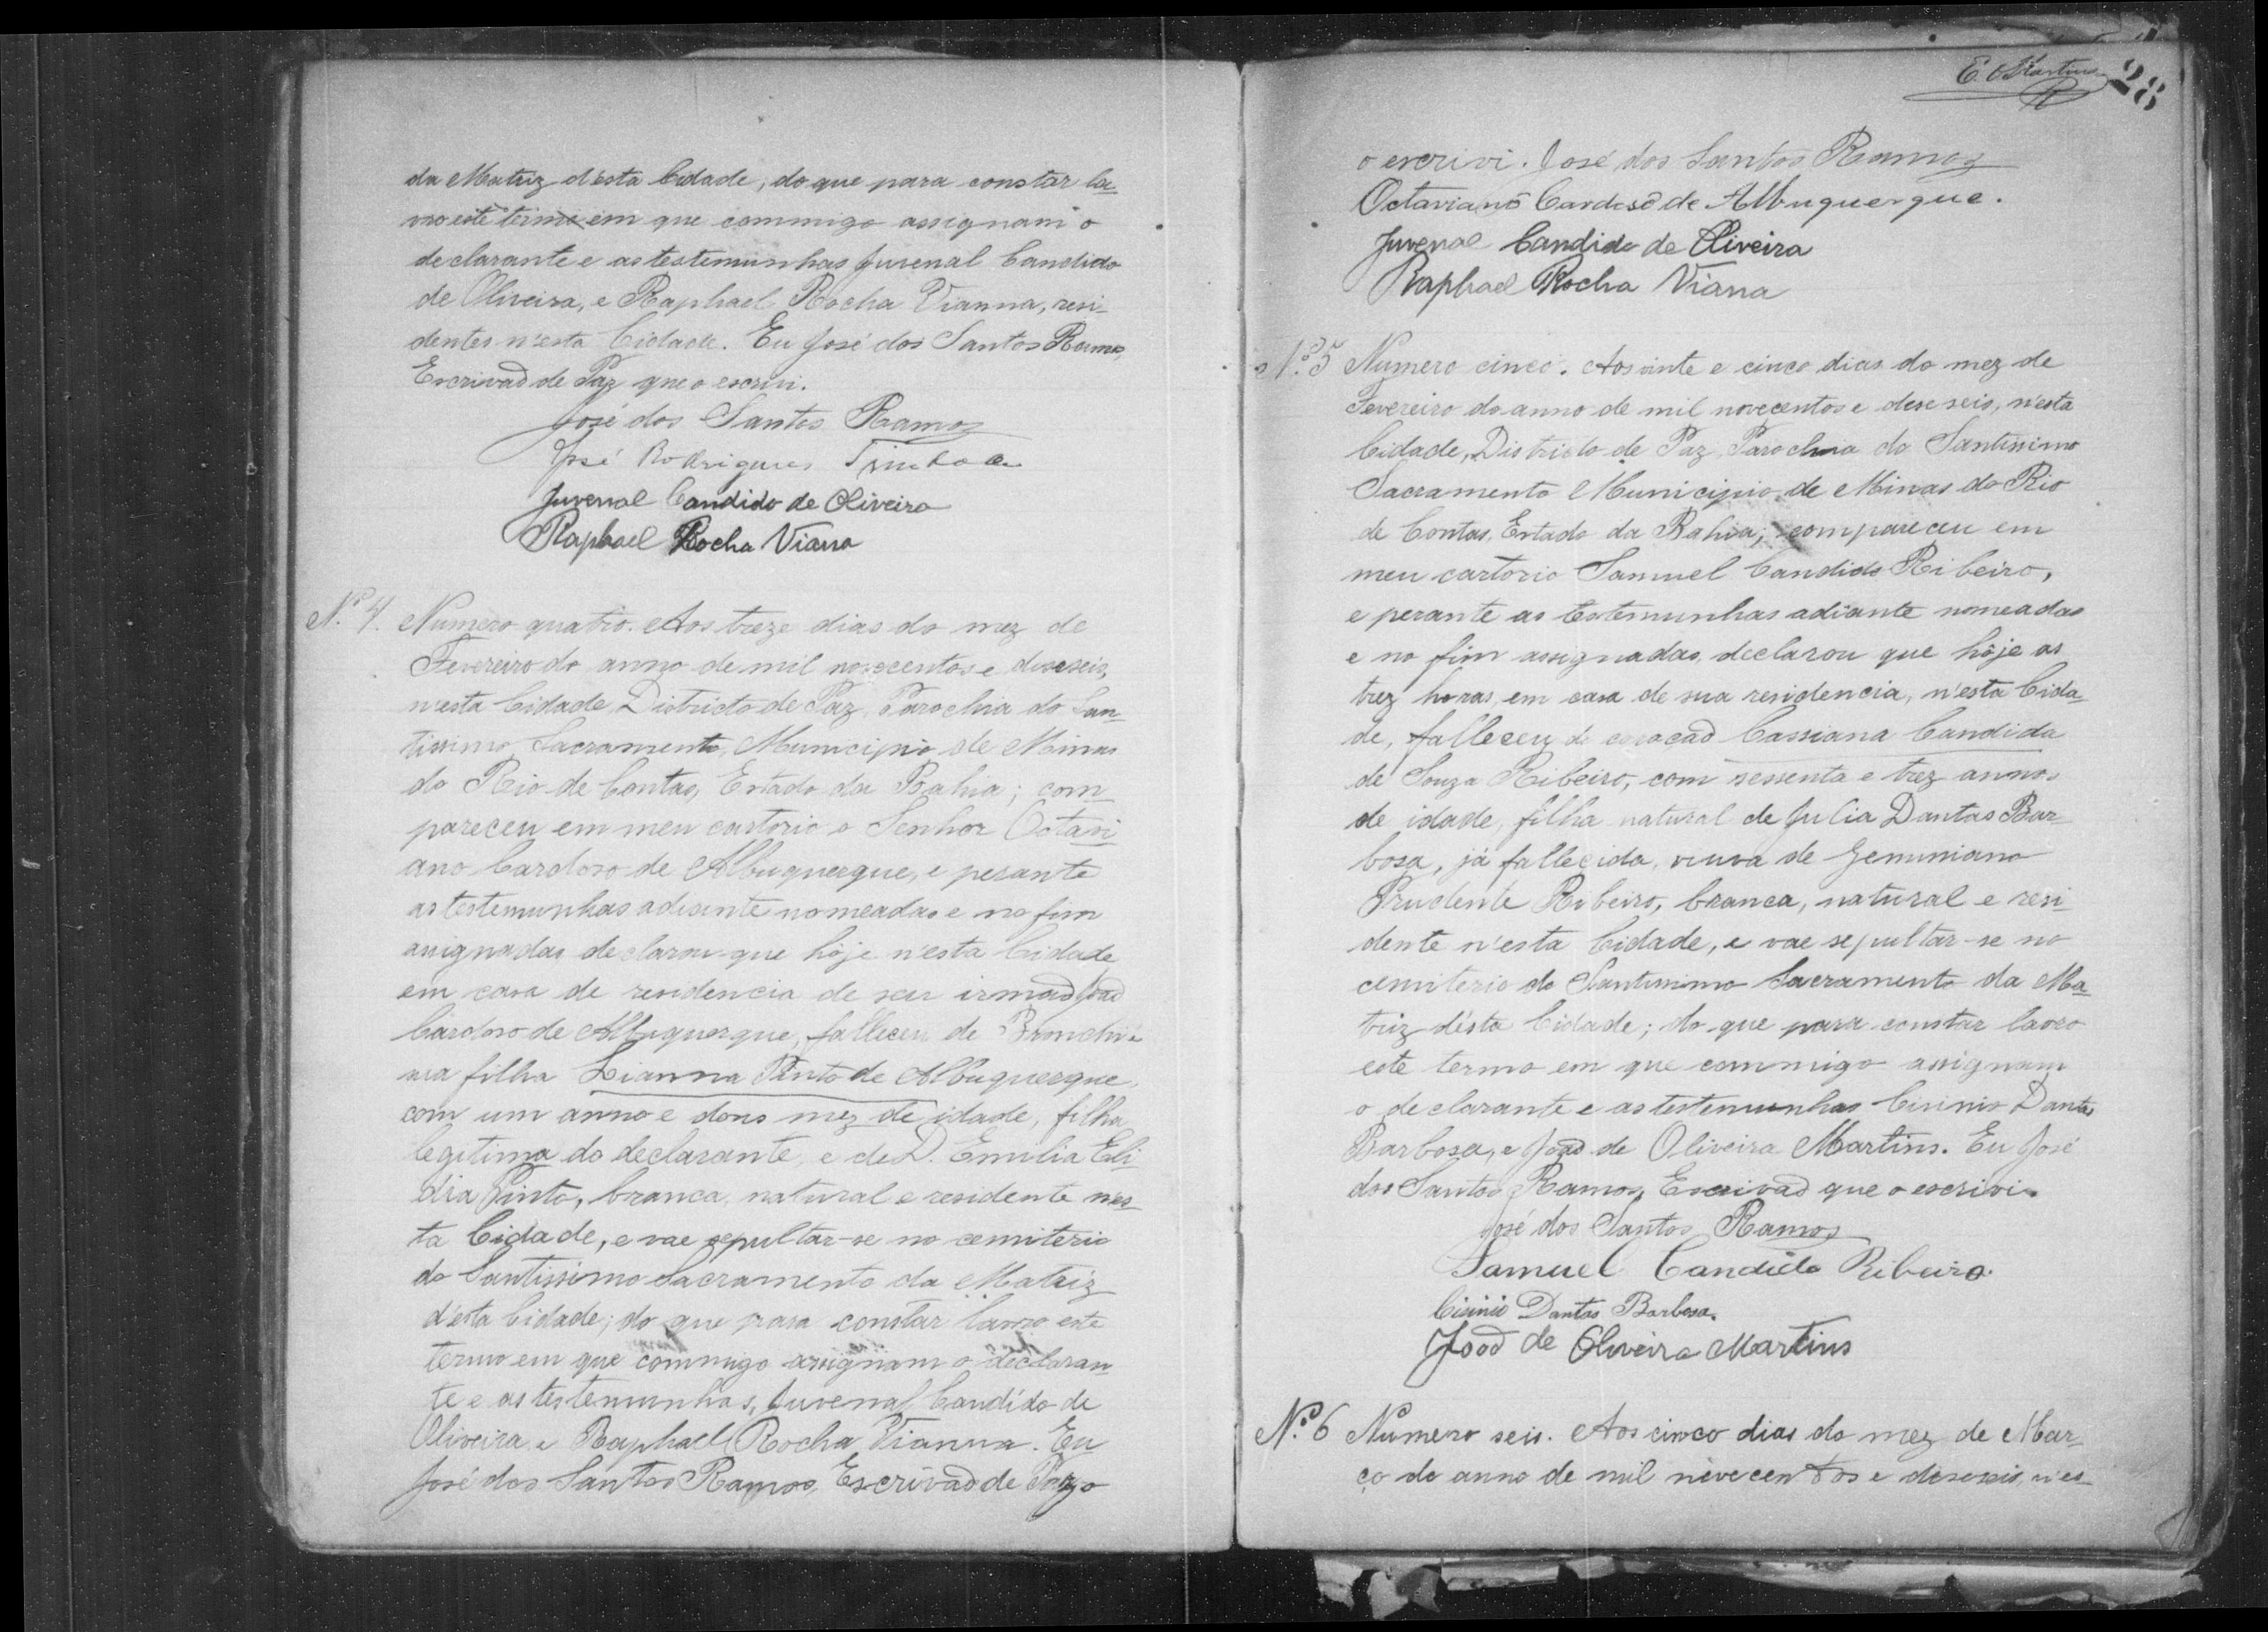 da Matriz d'esta Cidade, do que para constar la-
vro este termo em que commigo assignam o
declarante e as testemunhas Juvenal Candido
de Oliveira, e Raphael Rocha Vianna, resi-
dentes n'esta Cidade. Eu José dos Santos Ramos,
Escrivaõ de Paz que o escrivi.
José dos Santos Ramos
José Rodrigues
Juvenal Candido de Oliveira
Raphael Rocha Viana
N.º 4. Numero quatro. Aos treze dias do mez de
Fevereiro do anno de mil novecentos e deseseis,
n'esta Cidade Districto de Paz, Parochia do San-
tissimo Sacramento, Municipio de Minas
do Rio de Contas, Estado da Bahia; com-
pareceu em meu cartorio o Senhor Octavi-
ano Cardoso de Albuquerque, e perante
as testemunhas adiante nomeadas e no fim
assignadas declarou que hôje n'esta Cidade
em casa de residencia de seu irmaõ Joaõ
Cardoso de Albuquerque, falleceu de
sua filha Lianna Pinto de Albuquerque,
com um anno e dous mez de idade, filha
legitima do declarante, e de D. Emilia Eli-
dia Pinto, branca, natural e residente n'es-
ta Cidade, e vae sepultar-se no cemiterio
do Santissimo Sacramento da Matriz
d'esta Cidade; do que para constar lavro este
termo em que commigo assignam o declaran-
te e as testemunhas, Juvenal Candido de
Oliveira, e Raphael Rocha Vianna. Eu
José dos Santos Ramos, Escrivaõ de Paz o
E. O. Martins
28
o escrivi. José dos Santos Ramos
Octaviano Cardoso de Albuquerque.
Juvenal Candido de Oliveira
Raphael Rocha Viana
N.º 5 Numero cinco. Aos vinte e cinco dias do mez de
Fevereiro do anno de mil novecentos e deseseis, n'esta
Cidade, Districto de Paz, Parochia do Santissimo
Sacramento Municipio de Minas do Rio
de Contas, Estado da Bahia; compareceu em
meu cartorio Samuel Candido Ribeiro,
e perante as testemunhas adiante nomeadas
e no fim assignadas, declarou que hôje as
trez horas, em casa de sua residencia, n'esta Cida-
de, falleceu de coracaõ Cassiana Candida
de Souza Ribeiro, com sessenta e trez annos
de idade, filha natural de Julia Dantas Bar-
bosa, já fallecida, viuva de Geminiano
Prudente Ribeiro, branca, natural e resi-
dente n'esta Cidade, e vae sepultar-se no
cemiterio do Santissimo Sacramento da Ma-
triz d'esta Cidade; do que para constar lavro
este termo em que commigo assignam
o declarante e as testemunhas Cirinio Dantas
Barbosa, e Joaõ de Oliveira Martins. Eu José
dos Santos Ramos, Escrivaõ que o escrivi.
José dos Santos Ramos
Samuel Candido Ribeiro.
Cirinio Dantas Barbosa.
Joaõ de Oliveira Martins
N.º 6 Numero seis. Aos cinco dias do mez de Mar-
ço do anno de mil novecentos e deseseis, n'es-